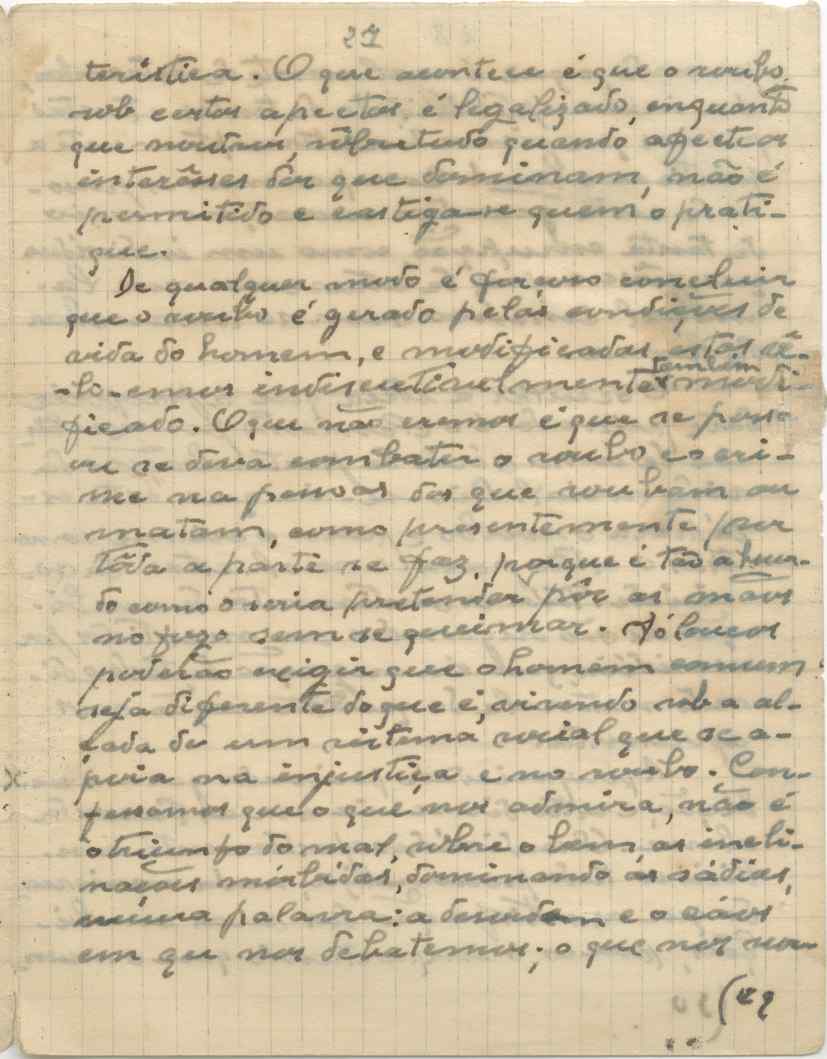 27
terística. O que acontece é que o roubo,
sob certos aspectos, é legalizado, enquanto
que noutros, sobretudo quando afecta os
interêsses dos que dominam, não é
permitido e castiga-se quem o prati-
que.
De qualquer modo é forçoso concluir
que o roubo é gerado pelas condições de
vida do homem, e modificadas estas sê-
-lo-emos indiscutivelmente modi-
também
ficado. O que não cremos é que se possa
ou se deva combater o roubo e o cri-
me na pessoas dos que roubam ou
matam, como presentemente por
tôda a parte se faz, porque é tão absur-
do como o seria pretender pôr as mãos
no fogo sem se queimar. Só loucos
poderão exigir que o homem comum
seja diferente do que é, vivendo sob a al-
çada de um sistema social que se a-
poia na injustiça e no roubo. Con-
fessamos que o que nos admira, não é
o triunfo do mal, sobre o bem, as incli-
nações mórbidas, dominando as sádias,
numa palavra: a desordem e o cáos
em que nos debatemos; o que nos